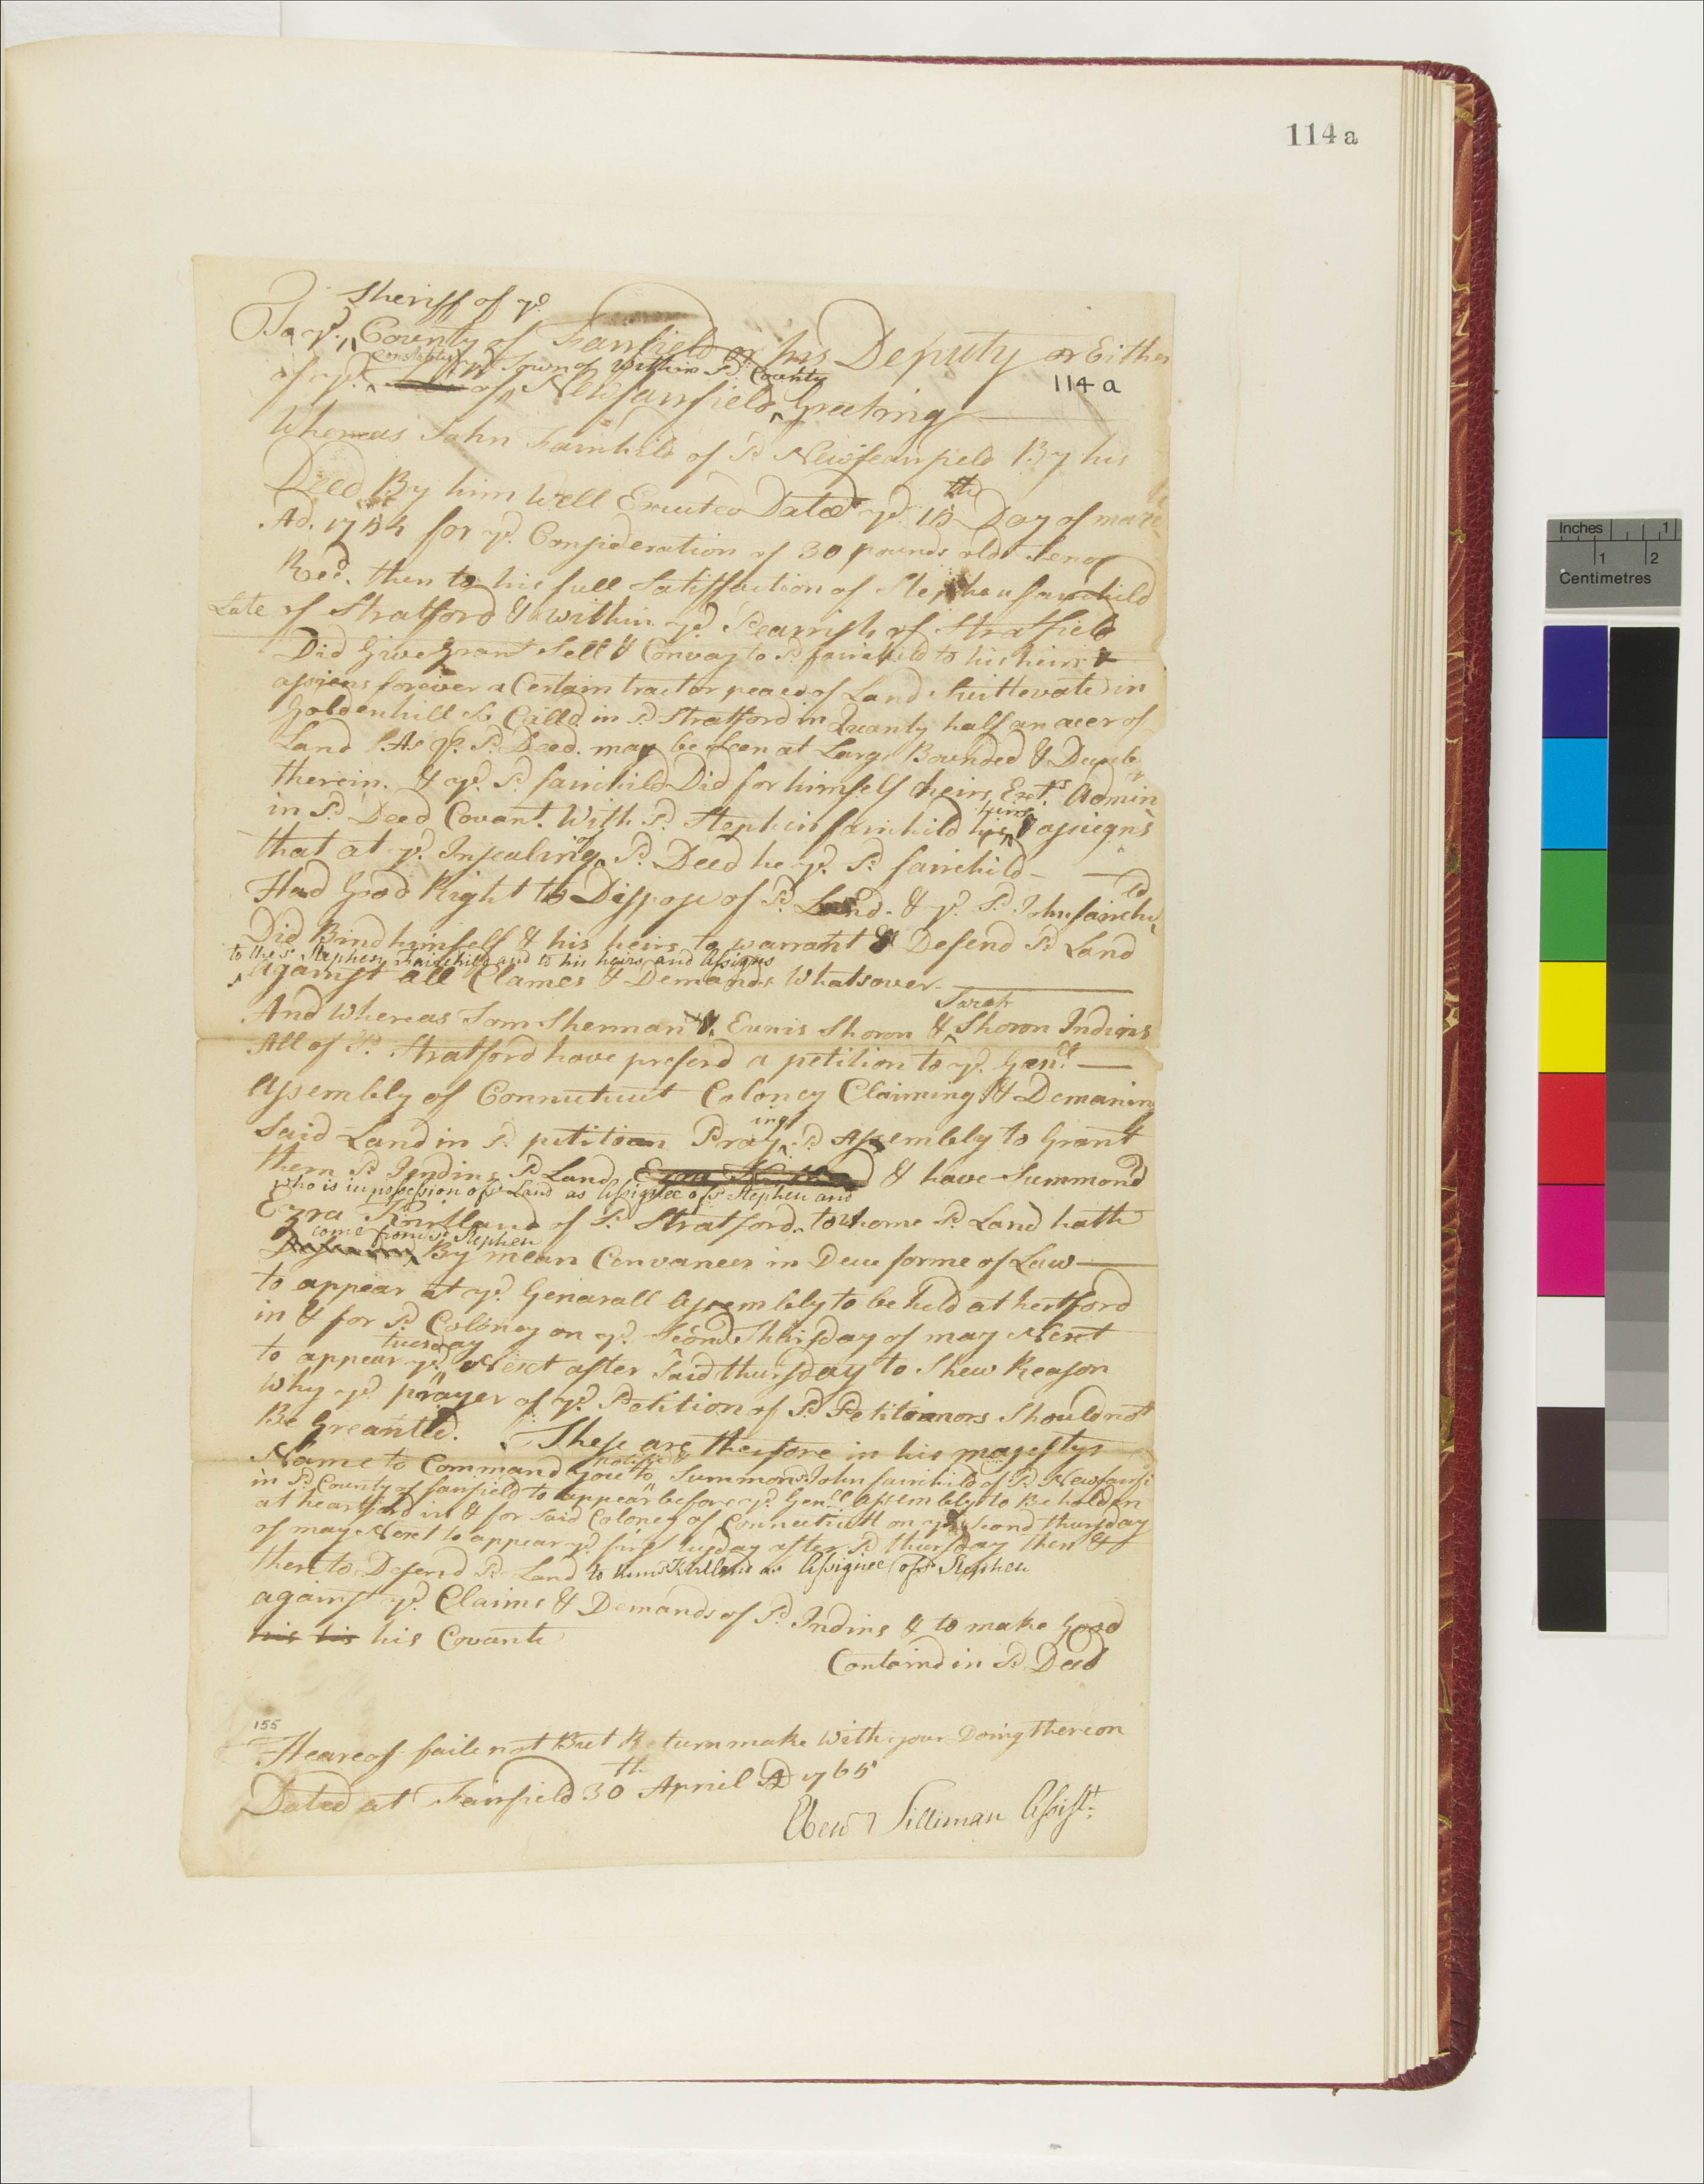 114 a
Sheriff of ye
To ye County of Fairfield or his Deputy or Either
Constables Town of within Sd County
of ye of Newfairfield Greeting
114 a
Whereas John Fairchild of Sd Newfeairfield By his
Deed By him Well Executed Dated ye 15th Day of
Ad. 1754 for ye Consideration of 30 pounds old Tenor
Recd. then to his full Satisfaction of Stephen fairchild
Late of Stratford & within ye Pearrish of Stratfield
Did Give Grant Sell & Convay to Sd fairchild to his heirs &
assiens forever a Certain tract or peace of Land Scittevate in
Goldenhill So Calld. in Sd Stratford in Quanty half an acer of
Land As ye Sd Deed. may be Seen at Large Bounded &
therein. & ye Sd fairchild Did for himself heirs, Exrs. Admin
in Sd Deed Covant. With Sd Stephen fairchild his heirs & assiegns
that at ye Insealing of Sd Deed he ye Sd fairchild
Had Good Right to Disspose of Sd Land. & ye Sd John fairchild
Did Bind himself & his heirs to warrant & Defend Sd Land
to the sd Stephen Fairchild and to his heirs and Assigns
Against all Clames & Demands Whatsover.
Sarah
And Whereas Tom Sherman & Eunis Shoron & Shoron Indigns
All of Sd Stratford have preferd a petition to ye Genll
Assembly of Connuticut Coloney Claiming & Demaning
Said Land in Sd petitoan Praying Sd Assembly to Grant
them Sd Indins Sd Land & have Summond
who is in possession of sd Land as Assignee of sd Stephen and
Ezra Kirtland of Sd Stratford. to Whome Sd Land hath
come from sd Stephen
By mean Convances in Deue forme of Law
to appear at ye Genarall Assembly to be held at hertford
in & for Sd Coloney on ye Second Thirsday of may Next
tuesday
to appear ye Next after Said thursday to Shew Reason
Why ye prayer of ye Petition of Sd Petitoinnors Should not
Be Greanted. These are therfore in his magestys
Name to Command you to notifie & Summons John fairchild of Sd Newfairfi
in Sd County of fairfield to appear before ye Genll assembly to Be holden
at heartford in & for Said Coloney of Connecticutt on ye Second thursday
of may Next to appear ye first tusday after Sd thursday then &
there to Defend Sd Land to him sd Kirtland as Assignee of sd Stephen
against ye Claims & Demands of Sd Indins & to make Good
his his his Covants
Containd in Sd Deed
155
Heareof faile not But Return make With your Doing thereon
Dated at Fairfield 30th April AD 1765
Ebenr Silliman Assistt:
Inches 1
1 2
Centimetres